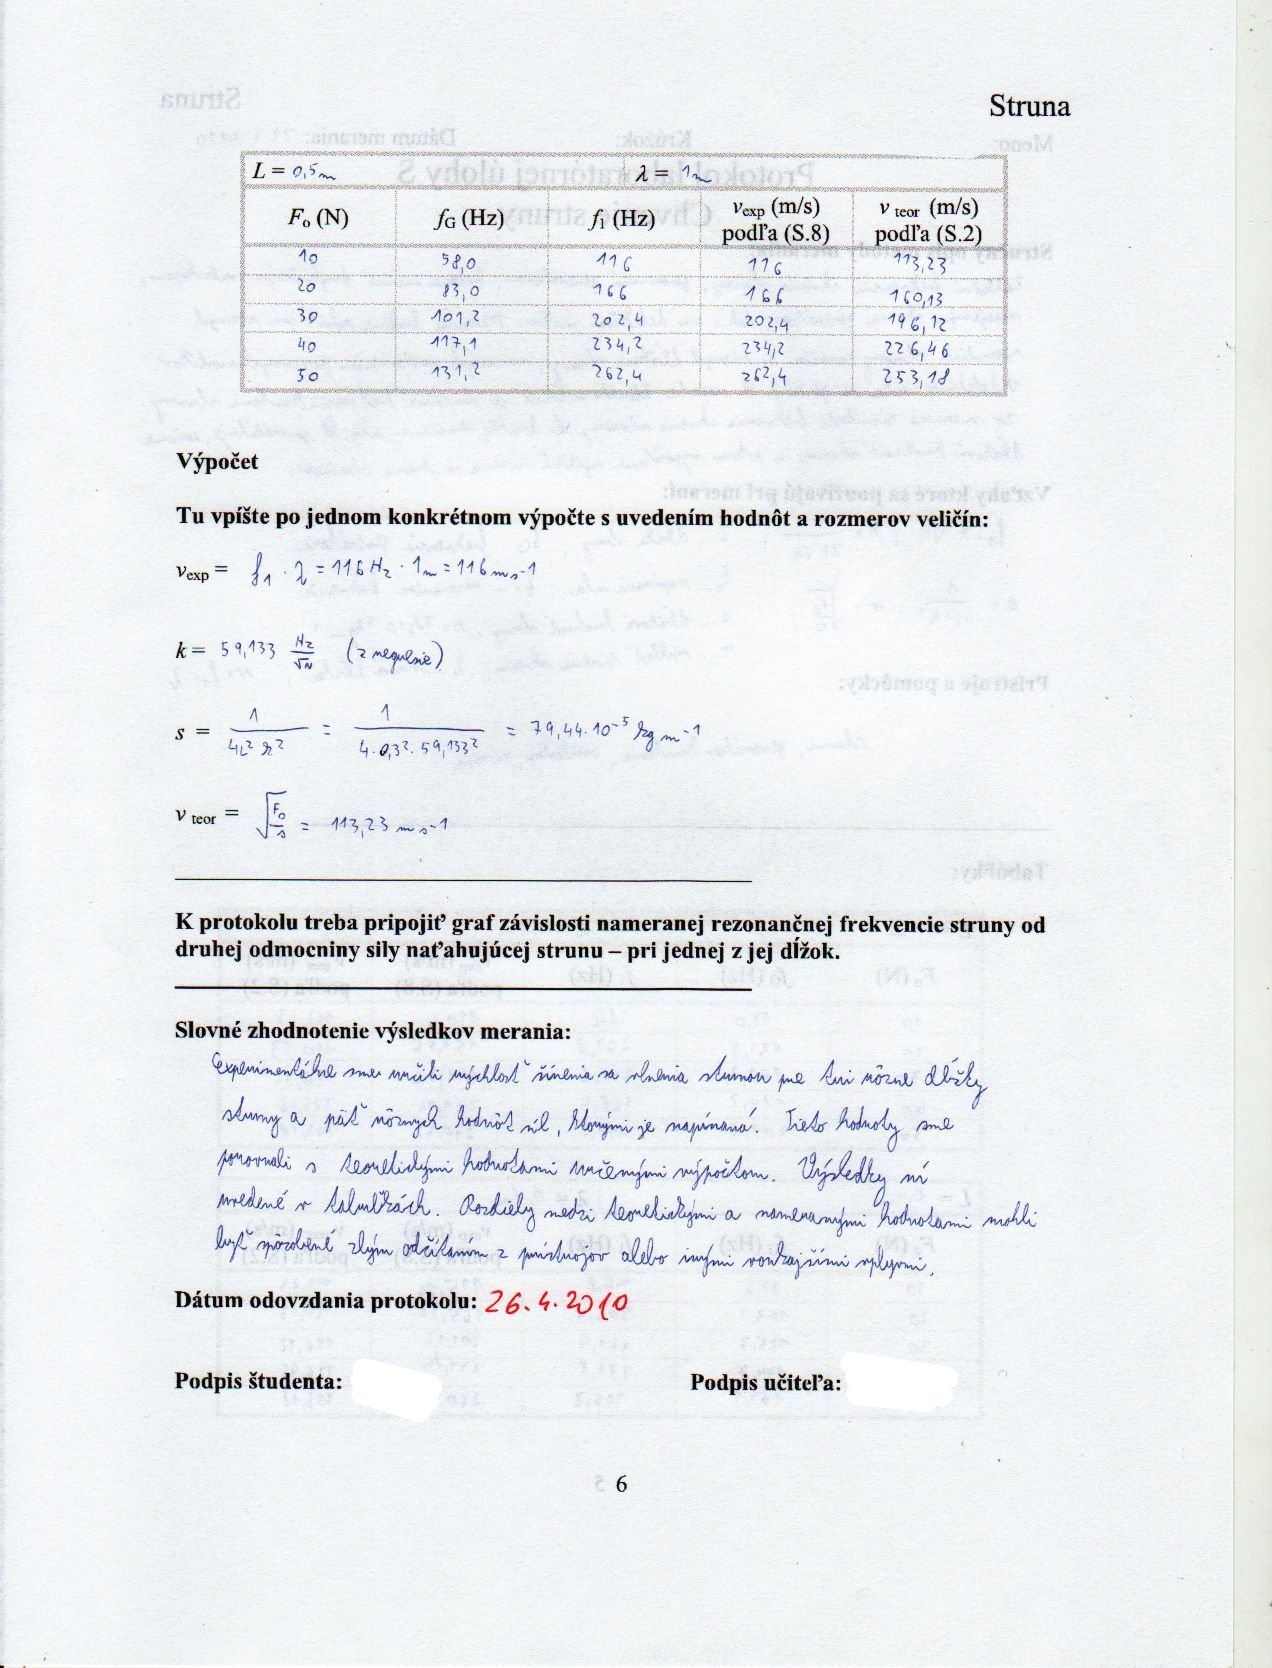 Struna
L = 0,5m λ = 1m
Fo (N) fG (Hz) f1 (Hz) vexp (m/s) podľa (S.8) v teor (m/s) podľa (S.2)
10 58,0 116 116 113,23
20 83,0 166 166 160,13
30 101,2 202,4 202,4 196,12
40 117,1 234,2 234,2 226,46
50 131,2 262,4 262,4 253,18
Výpočet
Tu vpíšte po jednom konkrétnom výpočte s uvedením hodnôt a rozmerov veličín:
vexp = f1 · λ = 116 Hz · 1m = 116 m s-1
k = 59,133 Hz/√N (z regresie)
s = 1/4L² k² = 1/4·0,3²·59,133² = 79,44·10-5 kg m-1
v teor = √Fo/s = 113,23 m s-1
K protokolu treba pripojiť graf závislosti nameranej rezonančnej frekvencie struny od
druhej odmocniny sily naťahujúcej strunu – pri jednej z jej dĺžok.
Slovné zhodnotenie výsledkov merania:
Experimentálne sme určili rýchlosť šírenia sa vlnenia strunou pre tri rôzne dĺžky
struny a päť rôznych hodnôt síl, ktorými je napínaná. Tieto hodnoty sme
porovnali s teoretickými hodnotami určenými výpočtom. Výsledky sú
uvedené v tabuľkách. Rozdiely medzi teoretickými a nameranými hodnotami mohli
byť spôsobené zlým odčítaním z prístrojov alebo inými vonkajšími vplyvmi.
Dátum odovzdania protokolu: 26.4.2010
Podpis študenta: Podpis učiteľa:
6